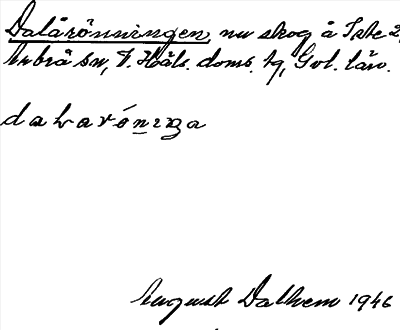 Dalårönningen, nu skog å Iste 2,
Arbrå sn, V. Häls. doms. tg, Gvl. län.
dalarónıŋa
August Dalhem 1946